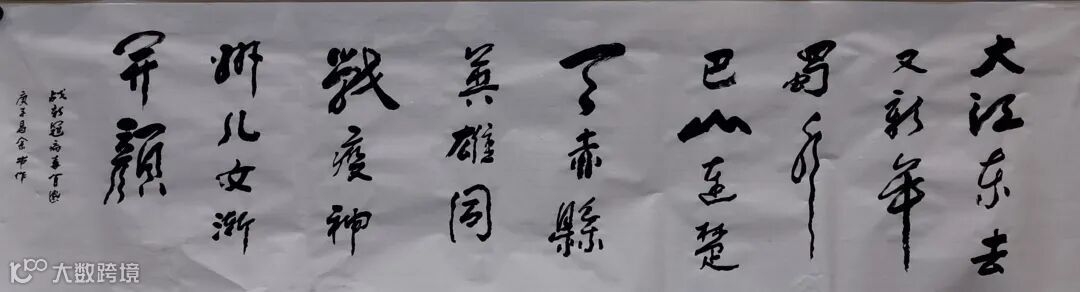 大江东去
又新年
蜀水
巴山连楚
天赤縣
英雄同
戰疫神
州儿女渐
开顔
战新冠病毒有感
庚子书作
大数跨境